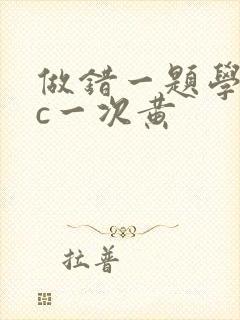 做錯一題學
c一次黃
拉普